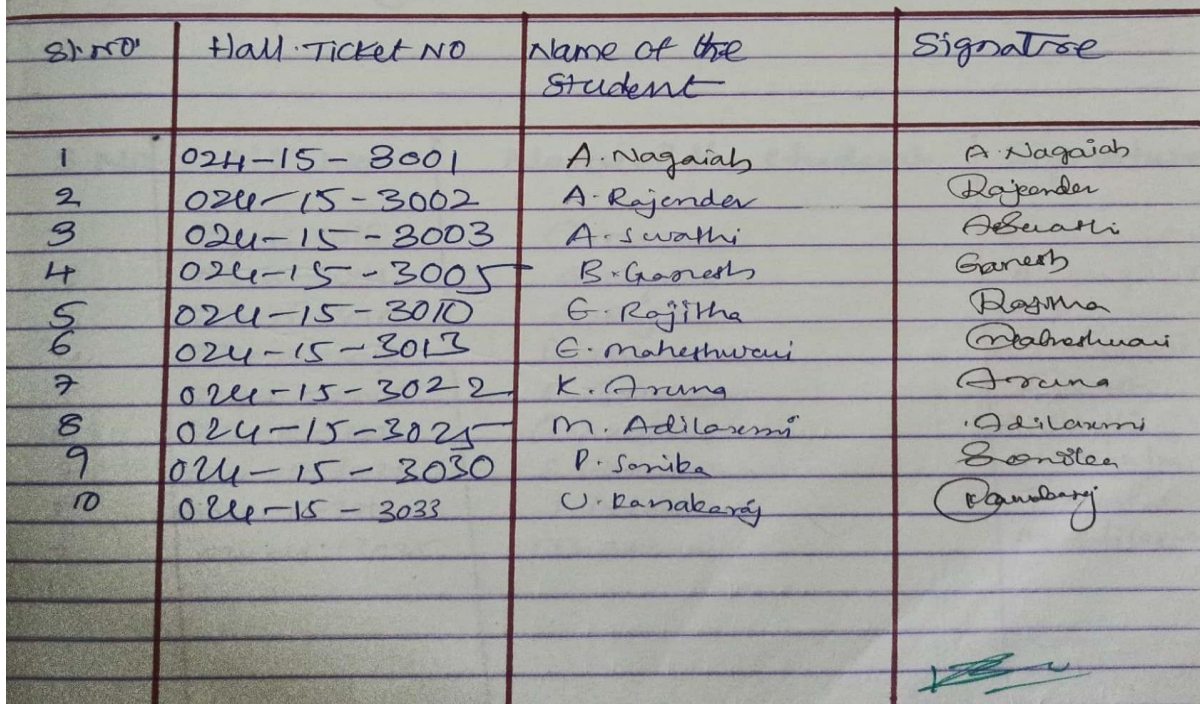 Sl.NO. Hall.Ticket NO Name of the Signature
Student
1 024-15-3001 A.Nagaiah A.Nagaiah
2 024-15-3002 A.Rajender Rajender
3 024-15-3003 A.Swathi A Swathi
4 024-15-3005 B.Ganesh Ganesh
5 024-15-3010 E.Rajitha Rajitha
6 024-15-3013 E.maheshwari maheshwari
7 024-15-3022 K.Aruna Aruna
8 024-15-3025 M.Adilaxmi Adilaxmi
9 024-15-3030 P.Sonika
10 024-15-3033